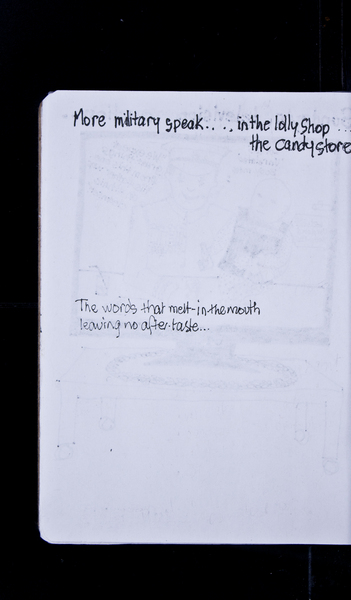 More military speak..., in the lolly shop ...
the candy store
The words that melt-in-the mouth
leaving no after-taste...